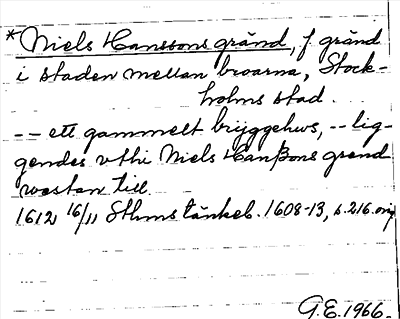 *Niels Hanssons gränd, f gränd
i staden mellan broarna, Stock-
holms stad.
-- ett gammelt brÿggehws, -- lig-
gendes vthi Niels Hanßons grend
westan till
1612 16/11 Sthms tänkeb. 1608-13, s. 216. orig
G.E. 1966.